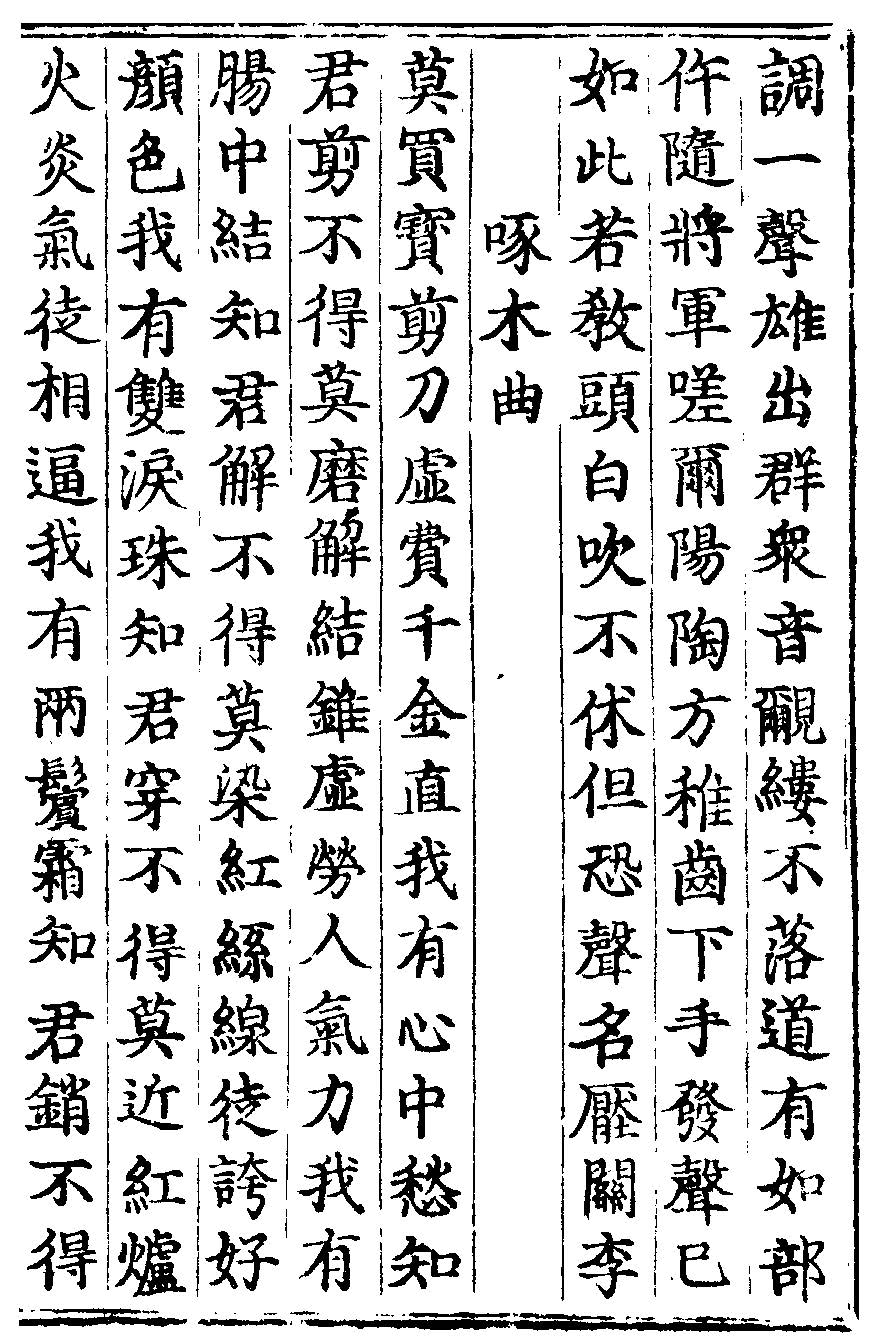 調一聲雄出群衆音覼縷不落道有如部
仵隨將軍嗟爾陽陶方稚齒下手發聲已
如此若教頭白吹不休但恐聲名壓關李
啄木曲
莫買寶剪刀虛費千金直我有心中愁知
君剪不得莫磨解結錐虛勞人氣力我有
腸中結知君解不得莫染紅絲線徒誇好
顏色我有雙淚珠知君穿不得莫近紅爐
火炎氣徒相逼我有兩鬢霜知君銷不得